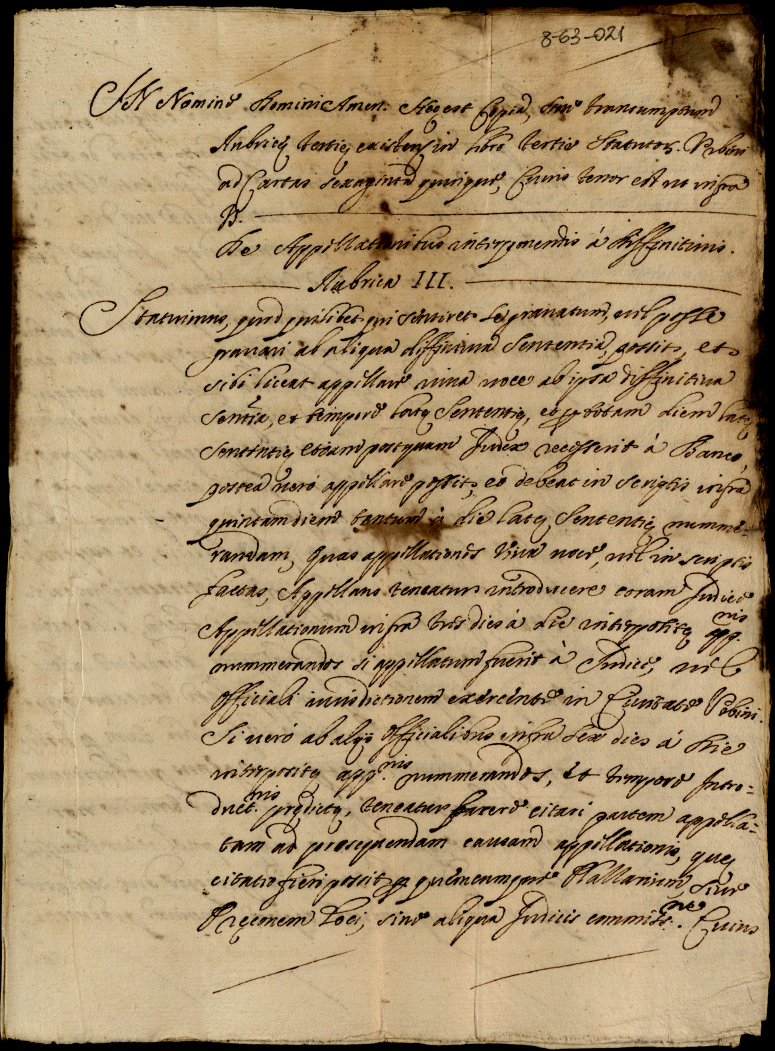 8-63-021
IN Nomine Domini Amen. Hoc est Copia, sive transumptum
Rubricę tertię, existen. in libro tertio Statutor. Urbini
ad Cartas sexaginta quinque, Cuius tenor est ut infra
Vz.
De Appellationibus interponendis à diffinitivis.
Rubrica III.
Statuimus, quod quilibet qui sentiret se gravatum, vel posse
gravari ab aliqua diffinitiva sententia, possit, et
sibi liceat appellare viva voce ab ipsa diffinitiva
sentīa, et tempore latę Sententię, et p totam diem latę
sententię etiam postquam Judex recesserit à Banco,
postea verò appellare possit, et debeat in scriptis infra
quintam diem tantum à die latę Sententię numme-
randam, Quas appellationes viva voce, vel in scriptis
factas, Appellans teneatur introducere coram Judice
Appellationum infra tres dies à die interpositę app.nis
nummerandos si appellatum fuerit à Judice, vel
Officiali iurisdictionem exercente in Civitate Urbini.
Si verò ab alijs Officialibus infra sex dies à die
interpositę app.nis nummerandos, Et tempore Intro-
duct.nis prędictę, teneatur facere citari partem appella-
tam ad prosequendam causam appellationis, quę
citatio fieri possit p quemcumque Plallarium, sive
Pręconem Loci, sine aliqua Judicis commiss.ne. Cuius